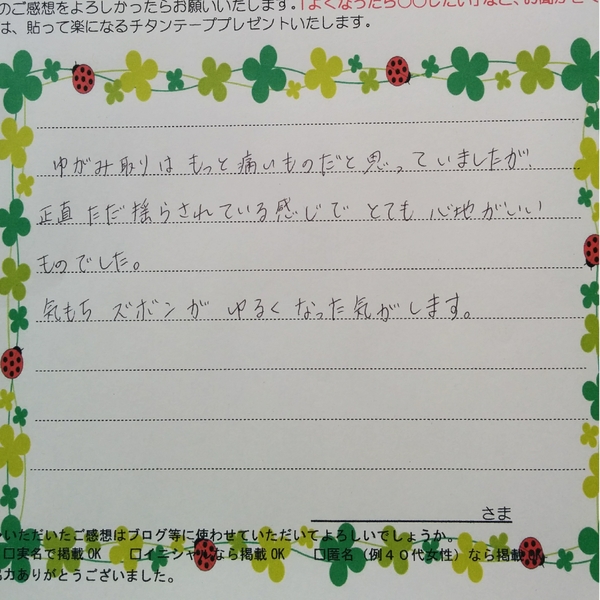 のご感想をよろしかったらお願いいたします。「よくなったら〇〇したい」など、お聞かせく
は、貼って楽になるチタンテーププレゼントいたします。
ゆがみ取りは もっと痛いものだと思っていましたが、
正直 ただ揺らされている感じで とても 心地がいい
ものでした。
気もち ズボンが ゆるく なった気がします。
さま
いただいたご感想はブログ等に使わせていただいてよろしいでしょうか。
□実名で掲載OK □イニシャルなら掲載OK □匿名（例４０代女性）なら掲載OK
力ありがとうございました。